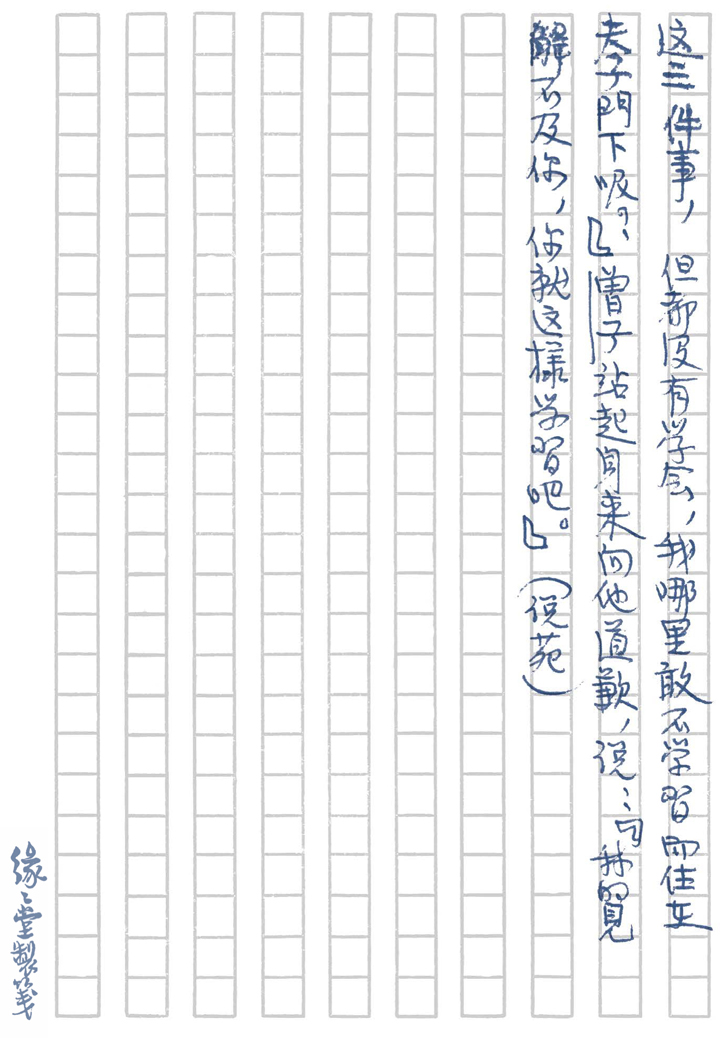 这三件事，但都没有学会，我哪里敢不学习而住在
夫子門下呢？』曾子站起身来向他道歉，说：『我的見
解不及你，你就这樣学習吧。』（说苑）
緣〻堂製箋